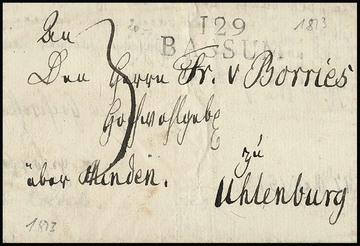 1813
An
129
BASSUM
Den Herrn Fr. v Borries
Hochwohlgeb
3
zu
über Minden.
Uhlenburg
1813